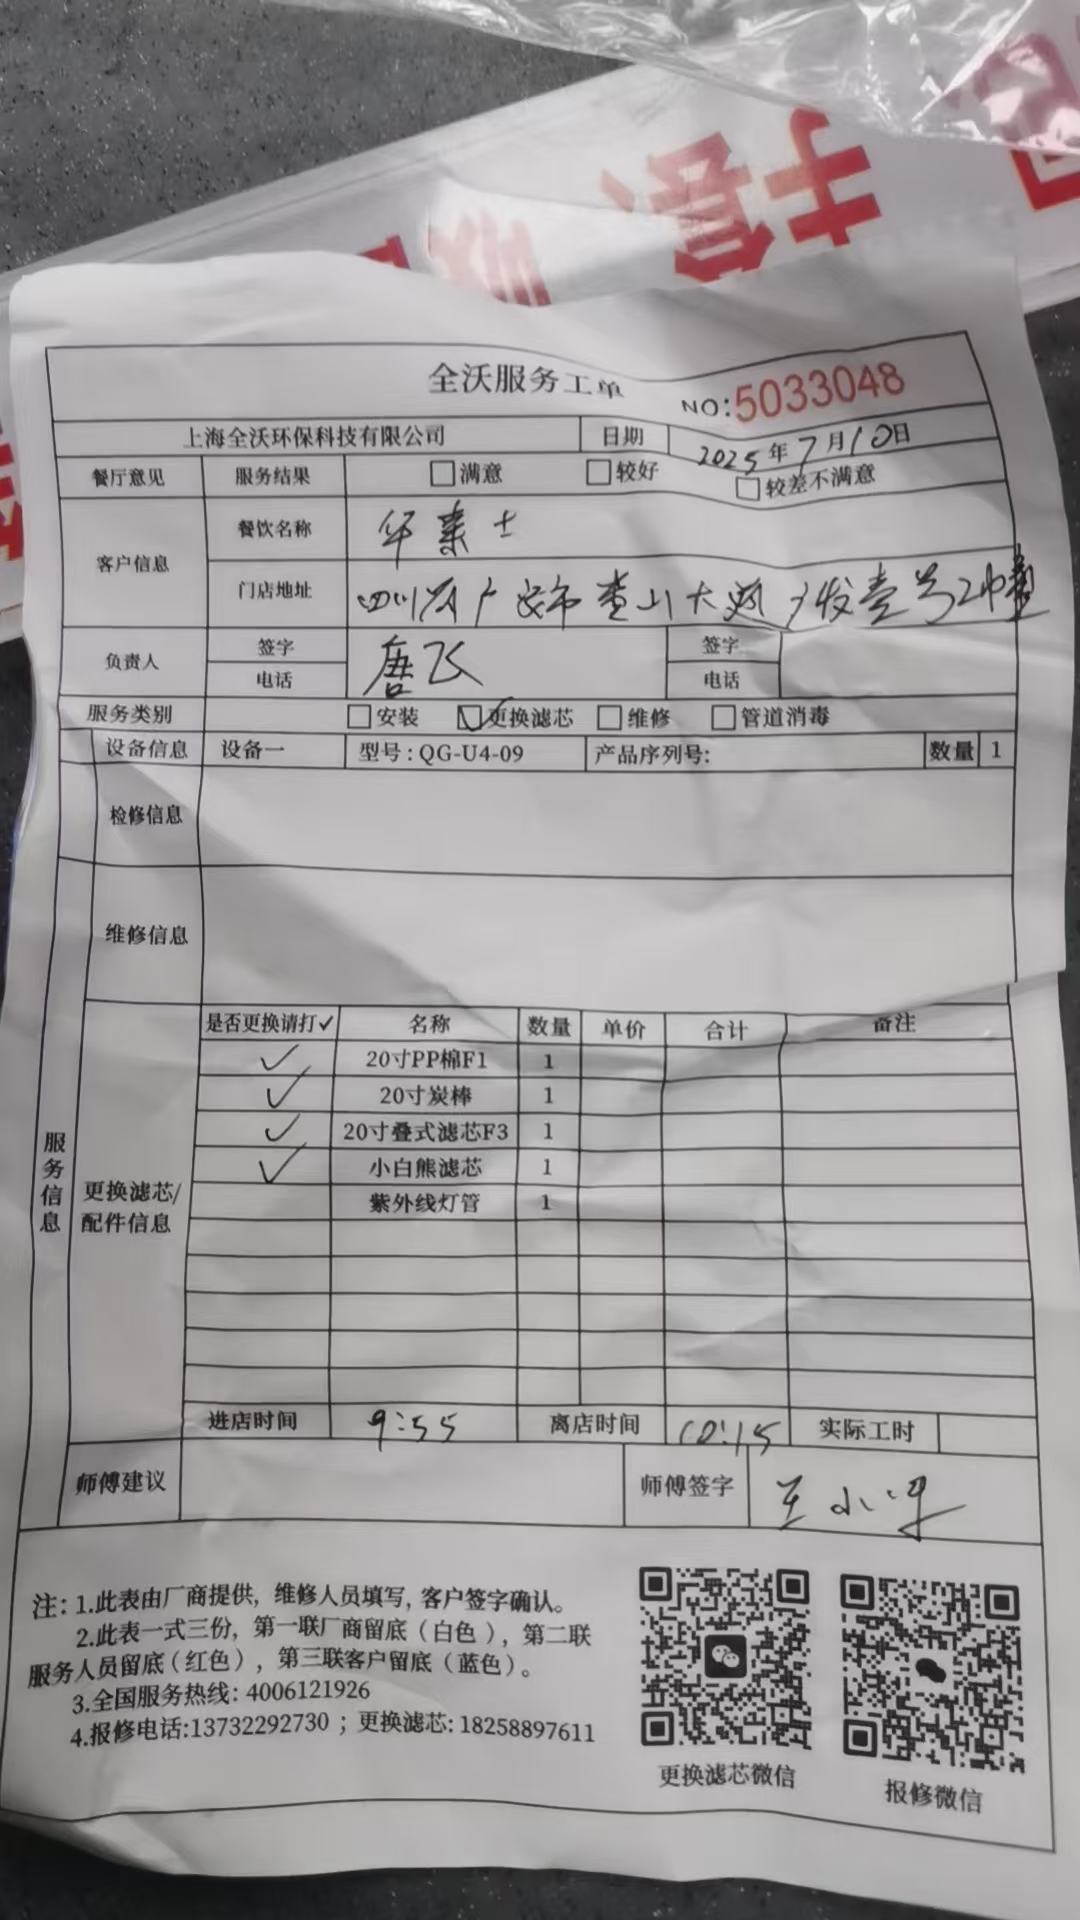 全沃服务工单
NO:5033048
上海全沃环保科技有限公司 日期 2025年7月10日
餐厅意见 服务结果 满意 较好 较差不满意
客户信息 餐饮名称 华莱士
门店地址 四川省广安市 大道 广发壹号2中
负责人 签字 唐飞 签字
电话 电话
服务类别 安装 更换滤芯 维修 管道消毒
设备信息 设备一 型号:QG-U4-09 产品序列号: 数量 1
检修信息
维修信息
服务信息
更换滤芯/配件信息
是否更换请打✓ 名称 数量 单价 合计 备注
✓ 20寸PP棉F1 1
✓ 20寸炭棒 1
✓ 20寸叠式滤芯F3 1
✓ 小白熊滤芯 1
紫外线灯管 1
进店时间 9:55 离店时间 10:15 实际工时
师傅建议 师傅签字 王小平
注:1.此表由厂商提供,维修人员填写,客户签字确认。
2.此表一式三份,第一联厂商留底(白色),第二联
服务人员留底(红色),第三联客户留底(蓝色)。
3.全国服务热线:4006121926
4.报修电话:13732292730;更换滤芯:18258897611
更换滤芯微信
报修微信